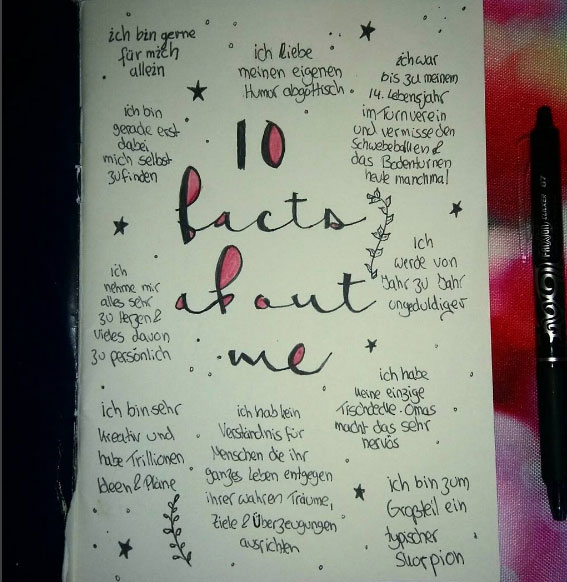 ich bin gerne
für mich
allein
ich liebe
meinen eigenen
Humor abgöttisch.
ich war
bis zu meinem
14. Lebensjahr
im Turnverein
und vermisse den
Schwebebalken &
das Bodenturnen
heute manchmal
ich bin
gerade erst
dabei
mich selbst
zu finden
10
facts
about
me
ich
nehme mir
alles sehr
zu Herzen &
vieles davon
zu persönlich
ich
werde von
Jahr zu Jahr
ungeduldiger
ich habe
keine einzige
Tischdecke. Omas
macht das sehr
nervös
ich bin sehr
kreativ und
habe Trillionen
Ideen & Pläne
ich hab kein
Verständnis für
Menschen die ihr
ganzes Leben entgegen
ihrer wahren Träume,
Ziele & Überzeugungen
ausrichten
ich bin zum
Großteil ein
typischer
Skorpion